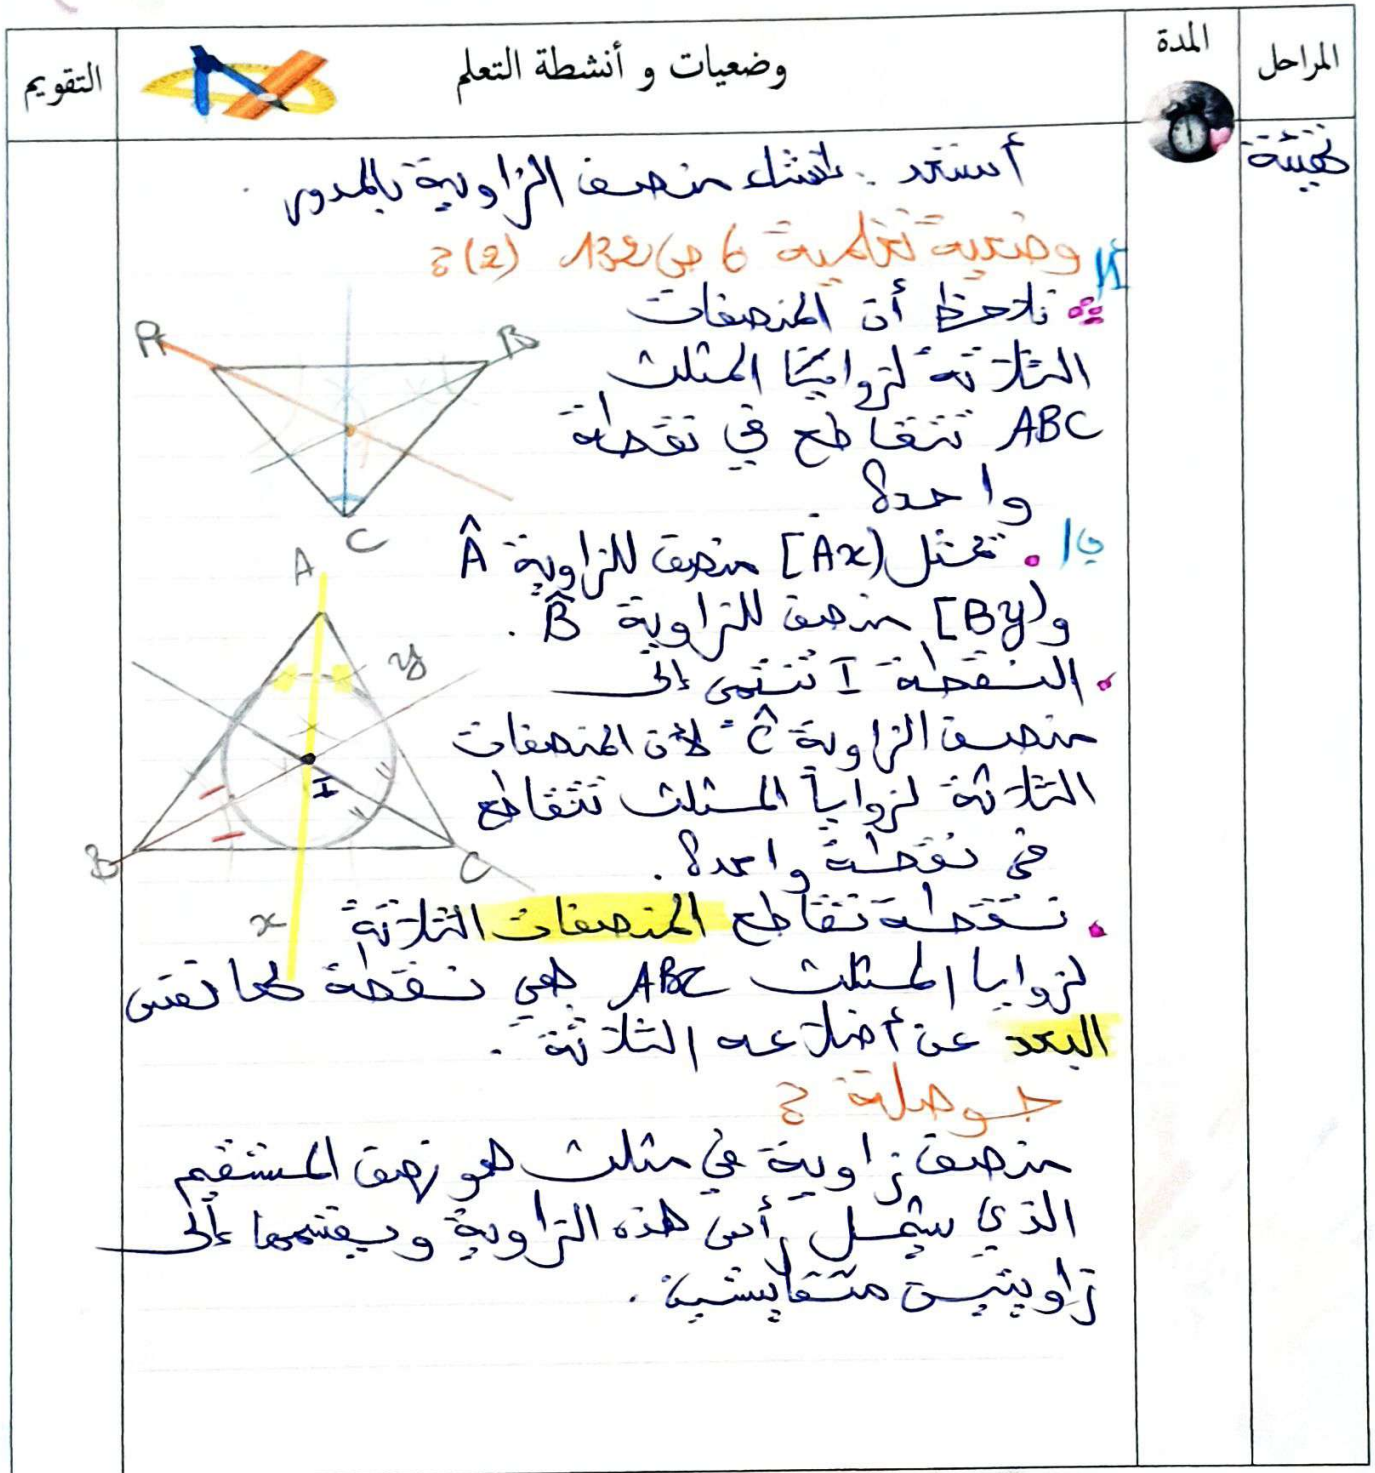 المراحل
المدة
وضعيات و أنشطة التعلم
التقويم
تهيئة
أستعد : إنشاء منصف الزاوية بالمدور .
وضعية تعلمية 6 ص 132 (2) :
أ/ نلاحظ أن المنصفات
الثلاثة لزوايا المثلث
ABC تتقاطع في نقطة
واحدة .
A
B
C
ب/ . تمثل [Ax) منصف للزاوية Â
و [By) منصف للزاوية B̂ .
. النقطة I تنتمي إلى
منصف الزاوية Ĉ لأن المنصفات
الثلاثة لزوايا المثلث تتقاطع
في نقطة واحدة .
A
y
I
B
C
x
. نقطة تقاطع المنصفات الثلاثة
لزوايا المثلث ABC هي نقطة لها نفس
البعد عن أضلاعه الثلاثة .
حوصلة :
منصف زاوية في مثلث هو نصف المستقيم
الذي يشمل رأس هذه الزاوية ويقسمها إلى
زاويتين متقايستين .